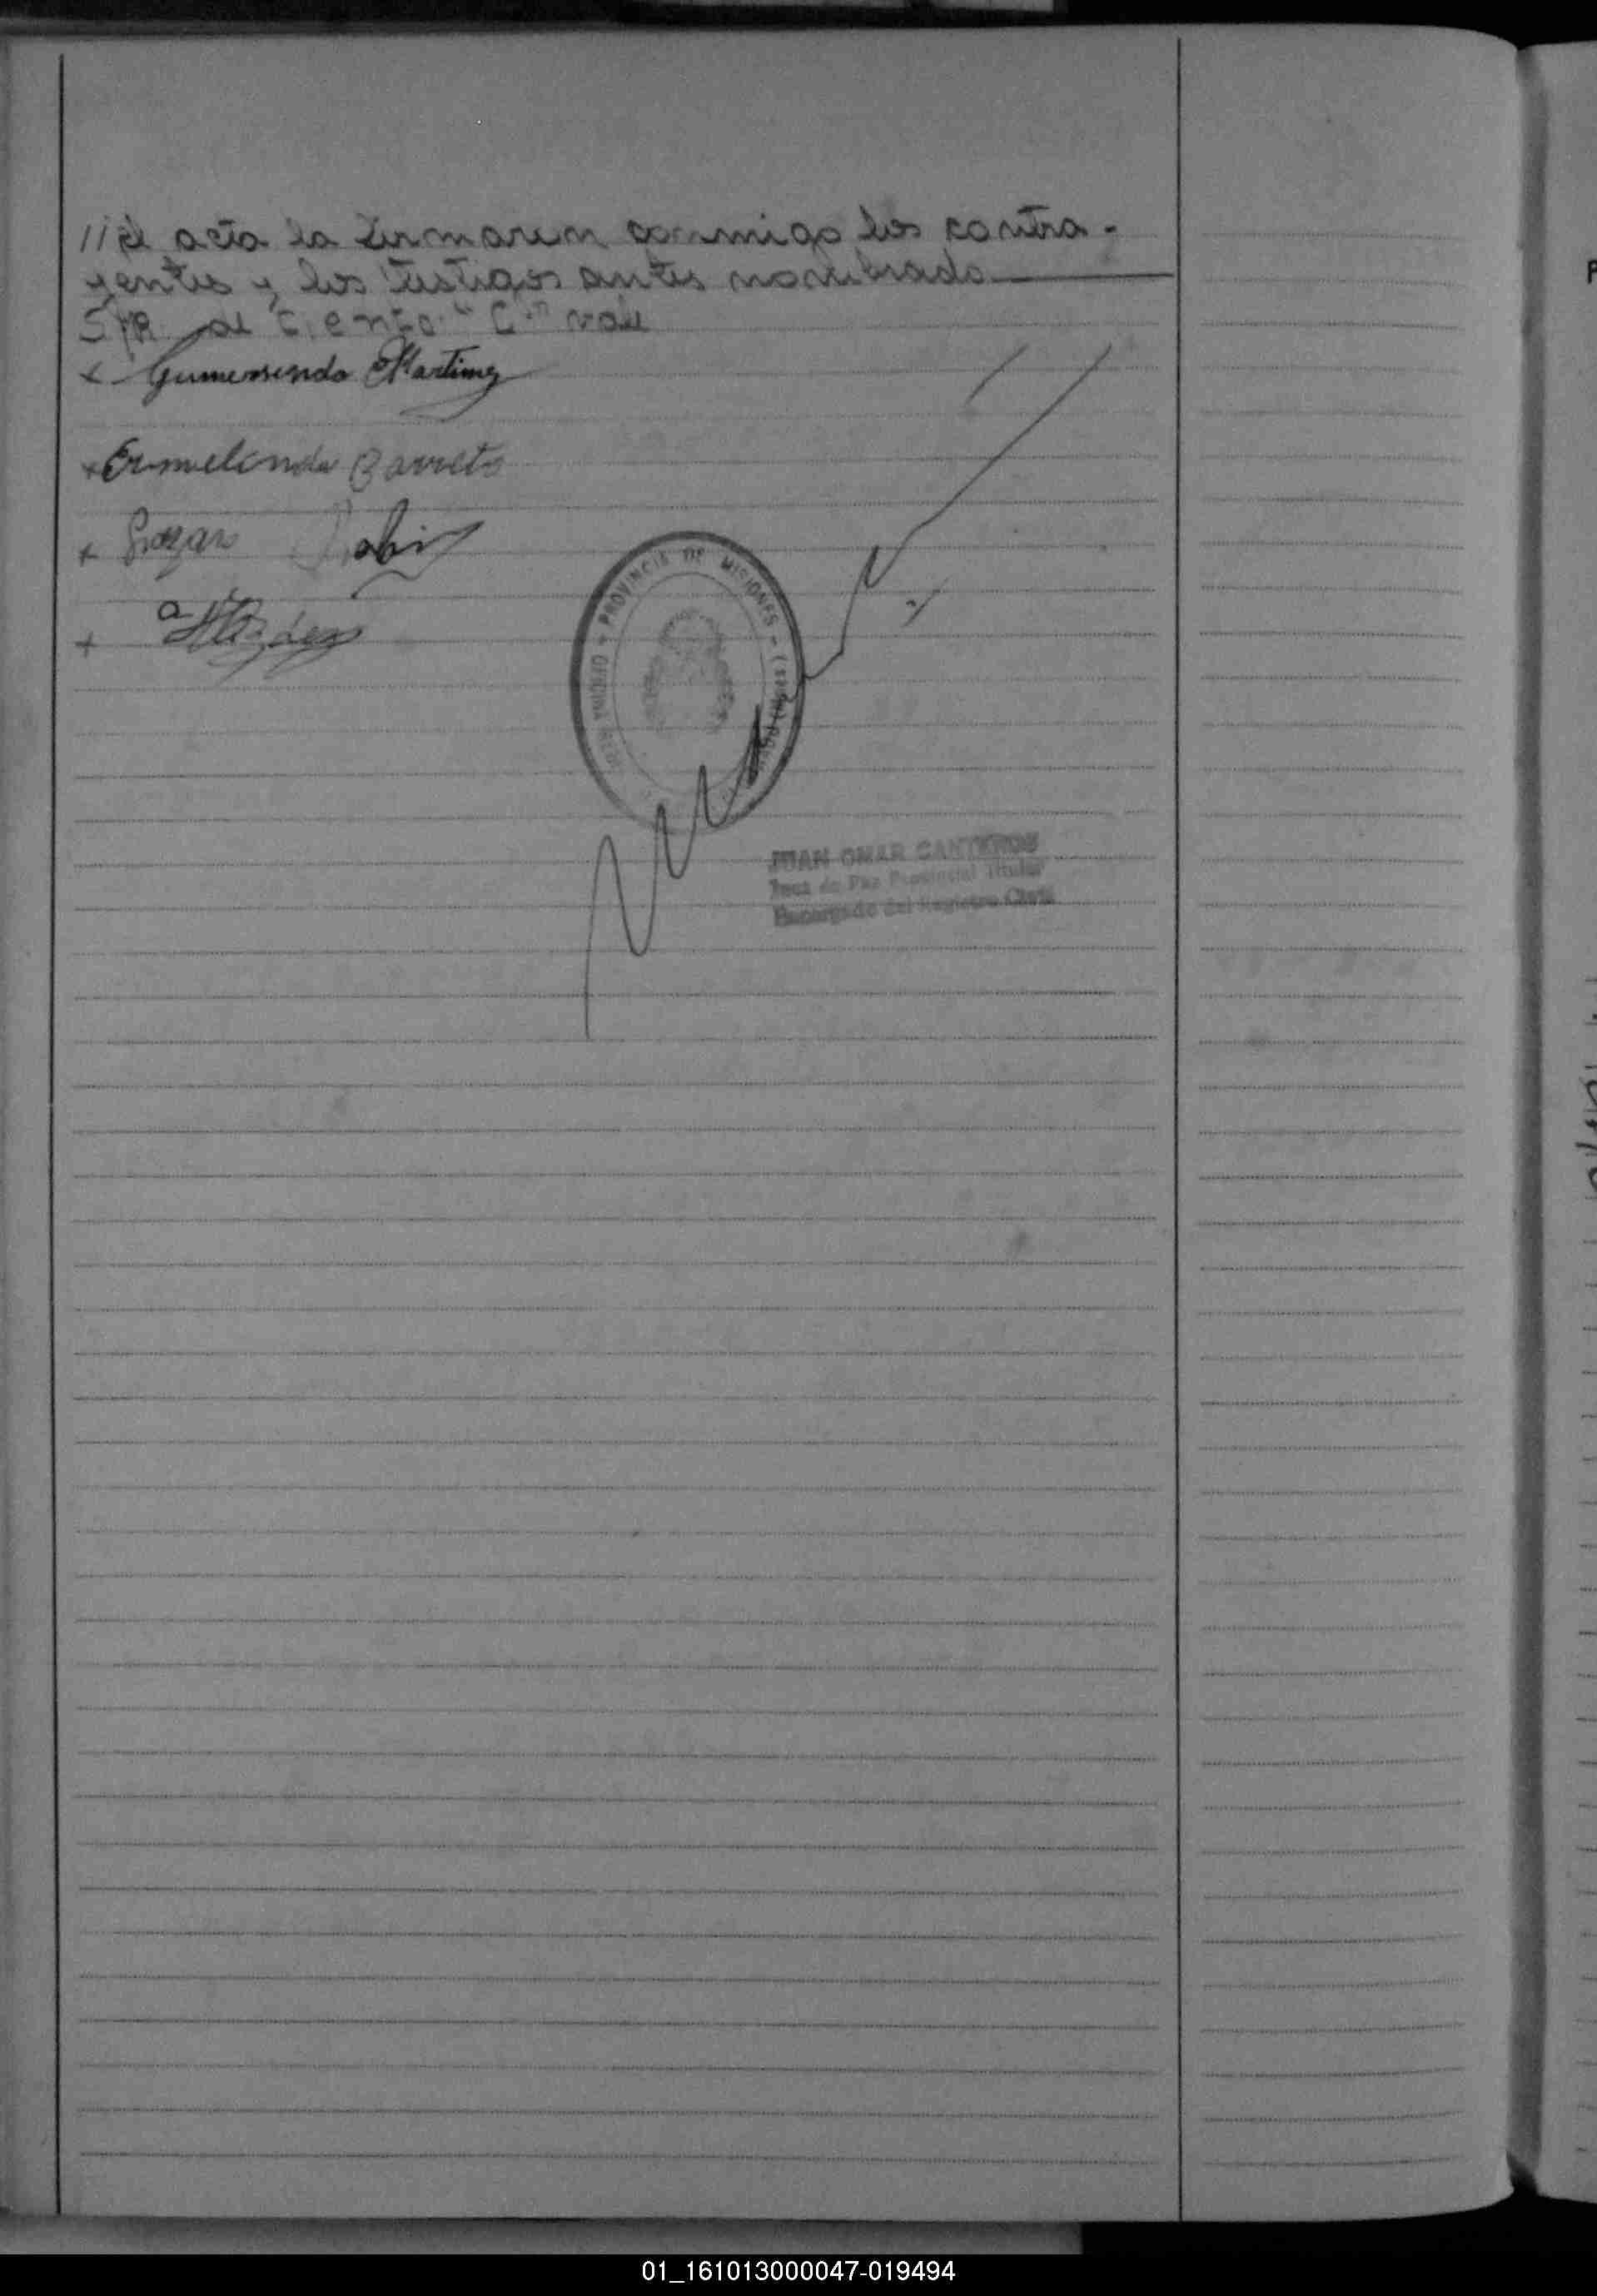 // el acta la firmaron conmigo los contra-
yentes y los testigos antes nombrado
S/R al Ciento "C" vale
x Gumersindo Martinez
x Ermelinda Barreto
x
x
PROVINCIA DE MISIONES
JUAN OMAR CANTEROS
Juez de Paz Provincial Titular
Encargado del Registro Civil
01_161013000047-019494